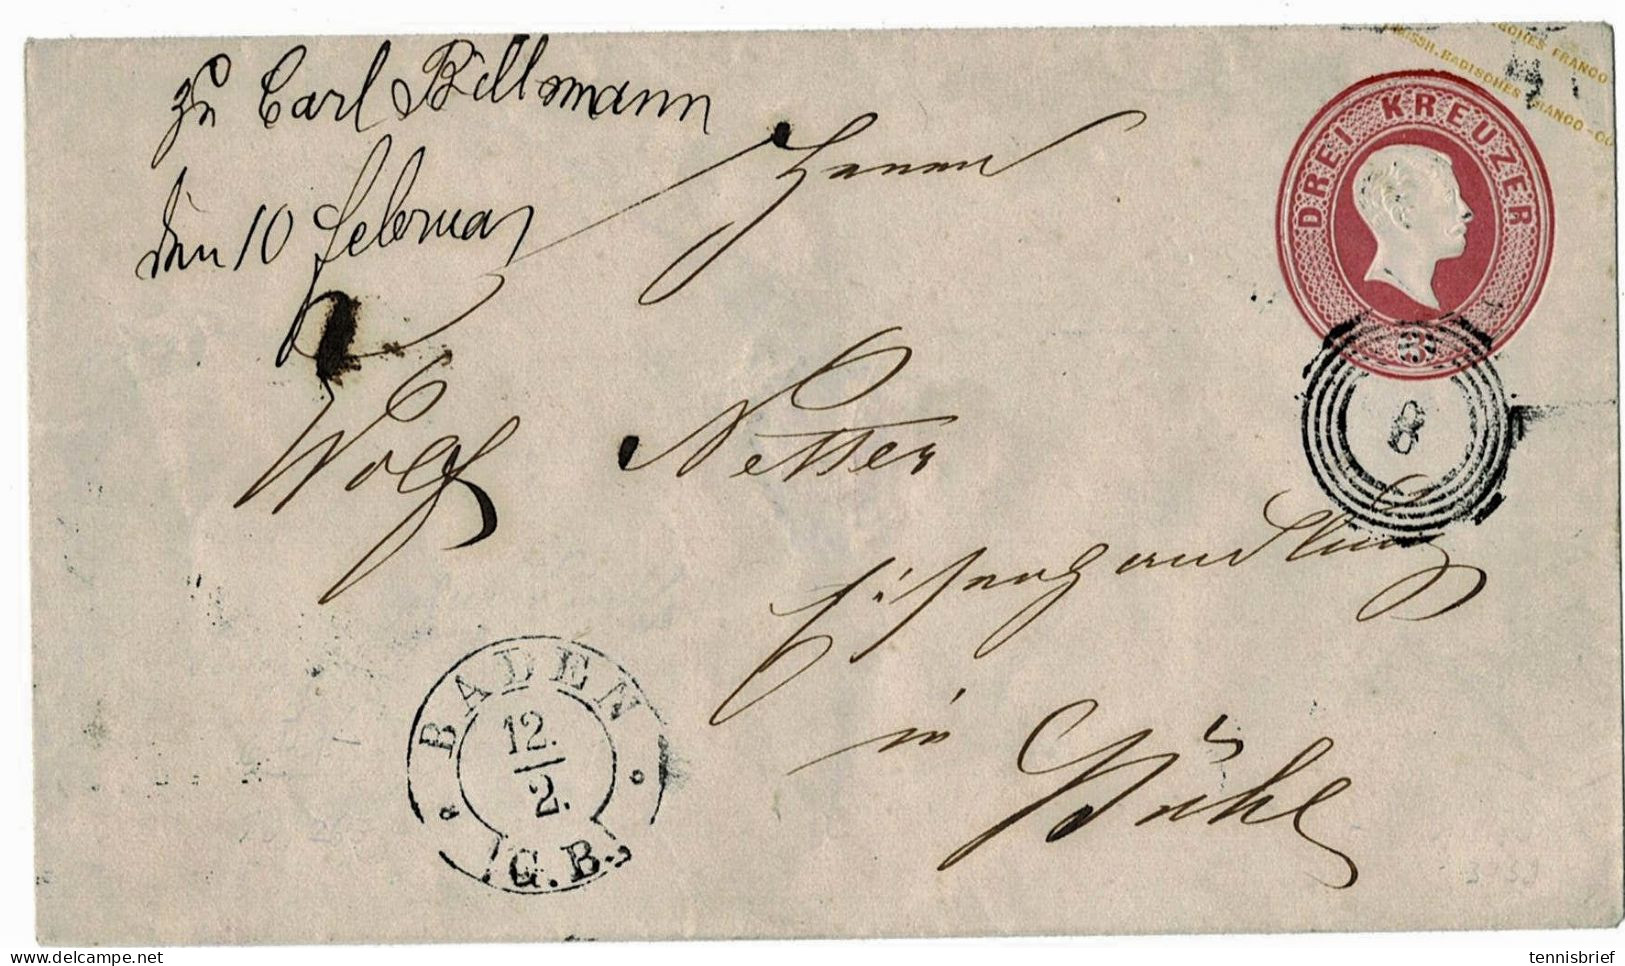 zu Carl Billsmann
den 10 Februar
Herrn
Wolf Netter
Eisenhandlung
in Bühl
GROSSH. BADISCHES FRANCO-CO
DREI KREUZER
3
8
BADEN
12.
2.
G.B.
tennisbrief